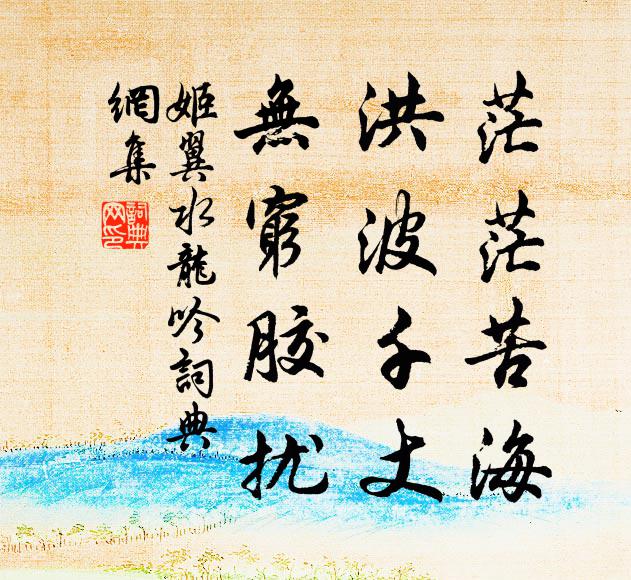 茫茫苦海
洪波千丈
無窮膠扰
姬翼水龍吟詞典
網集
詞典
网印